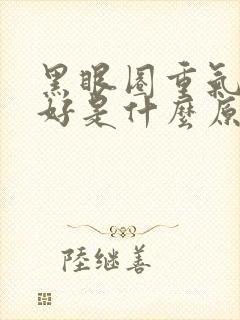 黑眼圈重氣
好是什麼原
陸继善